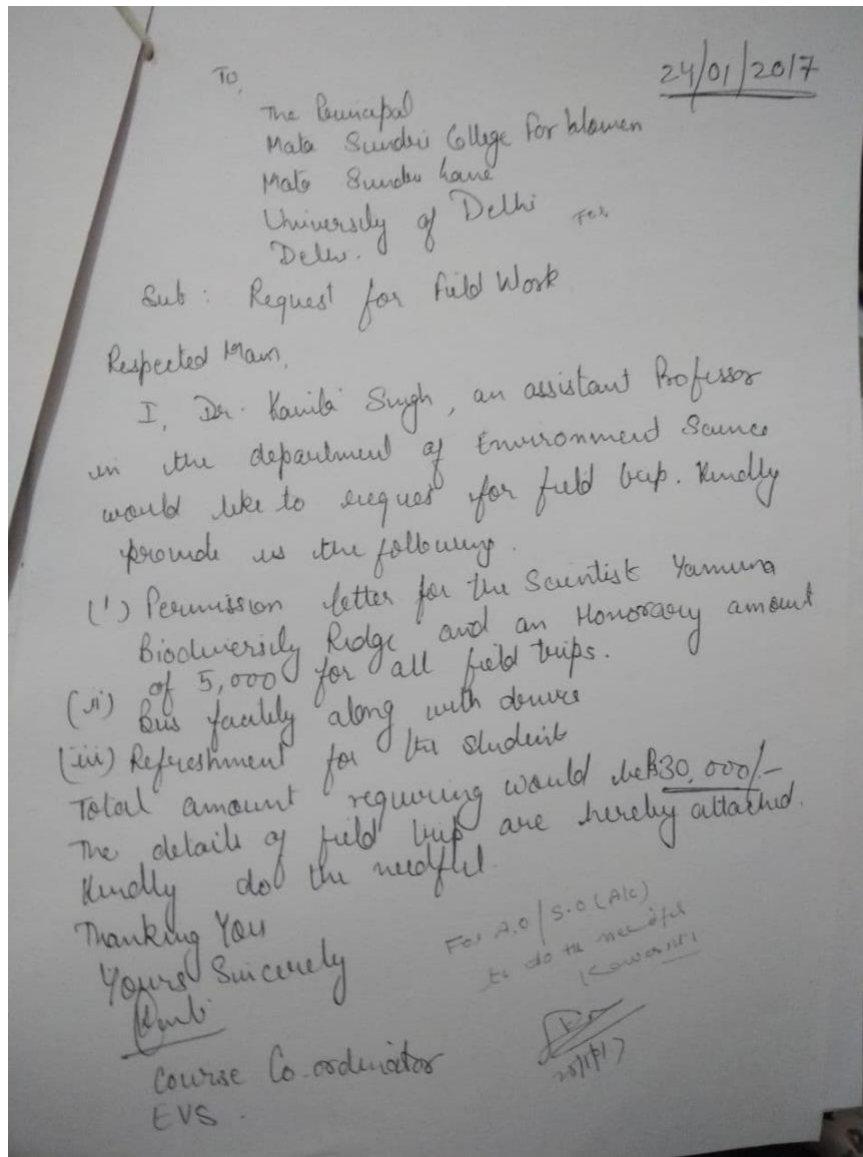 24/01/2017
To,
The Principal
Mata Sundri College for Women
Mata Sundri Lane
University of Delhi
Delhi.
For
Sub : Request for Field Work
Respected Mam,
I, Dr. Kavita Singh, an assistant Professor
in the department of Environment Science
would like to request for field trip. Kindly
provide us the following.
(i) Permission letter for the Scientist Yamuna
Biodiversity Ridge and an Honorary amount
of 5,000 for all field trips.
(ii) Bus facility along with driver
(iii) Refreshment for the student
Total amount requiring would be ₹30,000/-
The details of field trip are hereby attached.
Kindly do the needful.
Thanking You
Yours Sincerely
Course Co-ordinator
EVS.
For A.O / S.O (A/c)
to do the needful